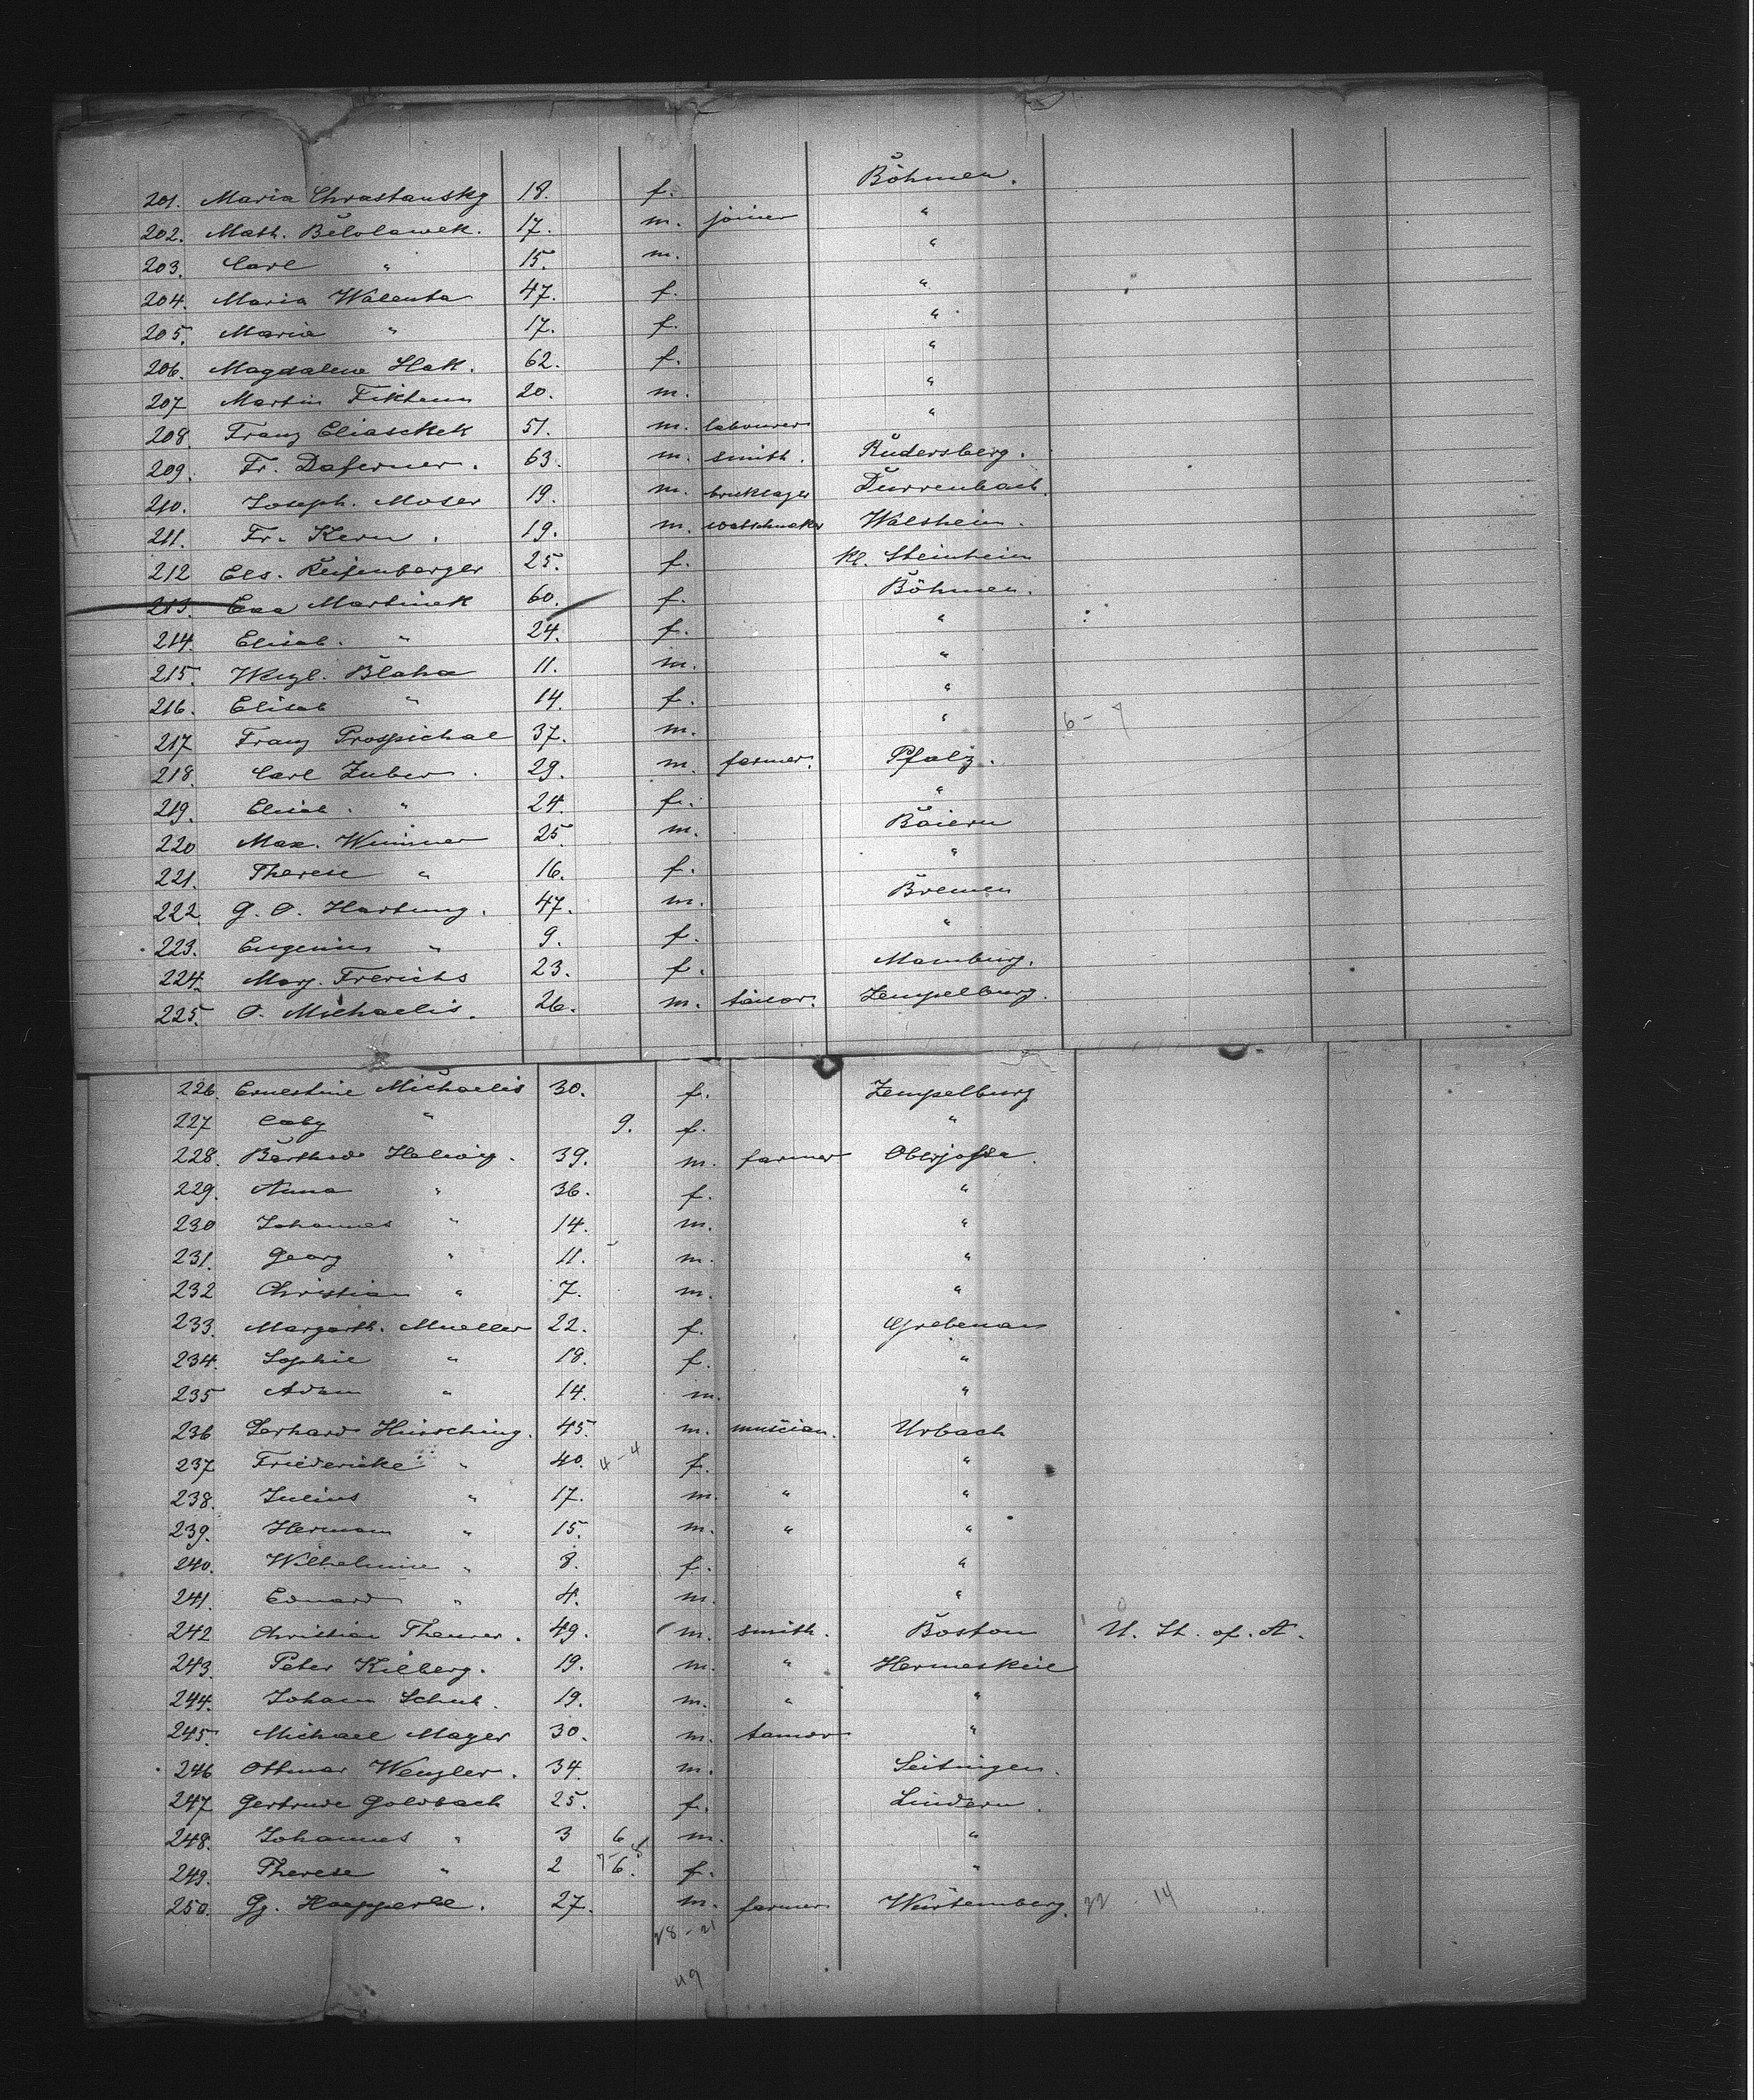 201. Maria Chrastansky 18. f. Böhmen.
202. Math. Bělolawek. 17. m. joiner "
203. Carl " 15. m. "
204. Maria Walenta 47. f. "
205. Maria " 17. f. "
206. Magdalena Hak. 62. f. "
207 Martin 20. m. "
208. Franz Eliaschek 51. m. labourer "
209. Fr. Daferner. 63. m. smith. Rudersberg.
210. Joseph. Moser 19. m. bricklayer Durrenbach.
211. Fr. Kern. 19. m. watschmaker Walsheim.
212 Els. Reifenberger 25. f. Kl. Steinheim
213. Eva Martinek 60. f. Böhmen.
214. Elisab. " 24. f. "
215. Wenzl. Blaha 11. m. "
216. Elisab " 14. f. "
217 Franz Prospichal 37. m. " 6-7
218. Carl Zuber. 29. m. farmer. Pfalz.
219. Elisab. " 24. f. "
220 Max. Wimmer 25 m. Baiern
221. Therese " 16. f. "
222 G. O. Hartung. 47. m. Bremen
223. Eugenius " 9. f. "
224. Marg. Frerichs 23. f. Mamburg.
225. O. Michaelis. 26. m. tailor. Zempelburg.
226. Ernestine Michaelis 30. f. Zempelburg
227 Coby " 9. f. "
228. Barthold Helwig. 39. m. farmer Oberjossa.
229. Anna " 36. f. "
230 Johannes " 14. m. "
231. Georg " 11. m. "
232 Christian " 7. m. "
233. Margarth. Mueller 22. f. Grebenau
234. Sophie " 18. f. "
235 Adam " 14. m. "
236 Gerhard Hirsching. 45. m. musician. Urbach
237 Friedericke " 40. 4-4 f. "
238. Julius " 17. m. " "
239. Hermann " 15. m. " "
240. Wilhelmine " 8. f. "
241. Eduard " 4. m. "
242 Christian Theurer. 49. m. smith. Boston U. St. of. A.
243. Peter Kilberg. 19. m. " Hermeskeil
244. Johann Schuh. 19. m. " "
245. Michael Mayer 30. m. tanner "
246 Ottmar Wenzler. 34. m. Seitingen.
247 Gertrude Goldbach 25. f. Lindern.
248. Johannes " 3 6 m. "
249. Therese " 2 6. f. "
250. Gg. Haepperle. 27. m. farmer Würtemberg. 22 - 14
28 - 21
49